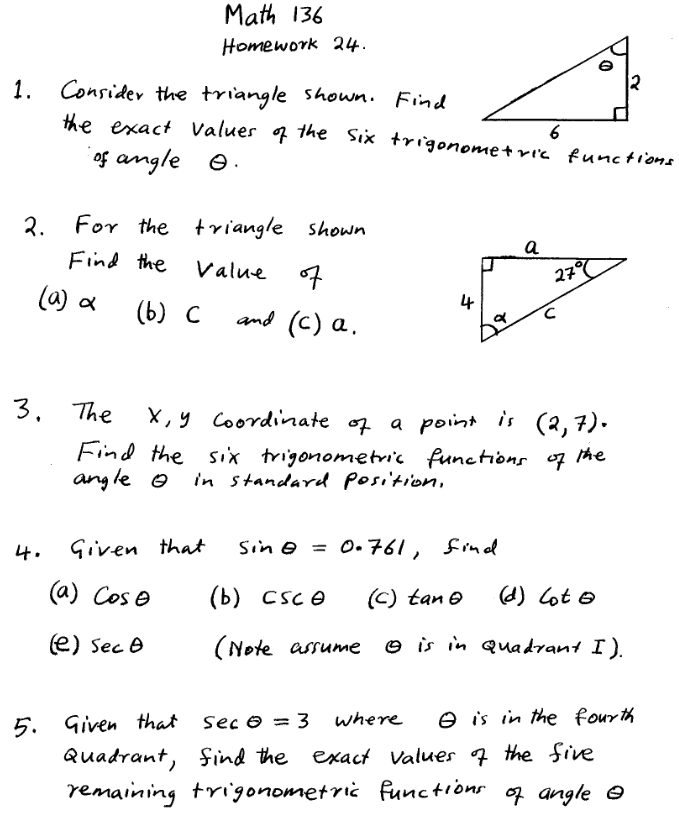 Math 136
Homework 24.
1. Consider the triangle shown. Find
the exact Values of the Six trigonometric functions
of angle θ.
θ
2
6
2. For the triangle shown
Find the Value of
(a) α (b) C and (c) a.
a
27°
4
α
c
3. The X, y Coordinate of a point is (2,7).
Find the six trigonometric functions of the
angle θ in standard Position.
4. Given that Sin θ = 0.761, find
(a) Cos θ (b) CSC θ (c) tan θ (d) Cot θ
(e) Sec θ (Note assume θ is in Quadrant I).
5. Given that Sec θ = 3 where θ is in the fourth
Quadrant, find the exact Values of the five
remaining trigonometric functions of angle θ